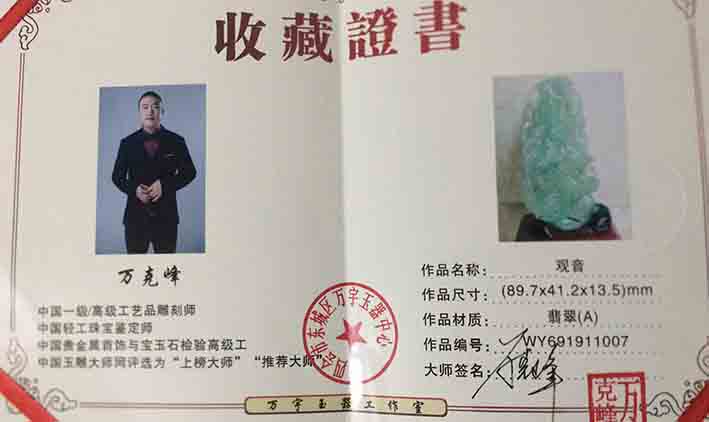 收藏證書
万克峰
中国一级/高级工艺品雕刻师
中国轻工珠宝鉴定师
中国贵金属首饰与宝玉石检验高级工
中国玉雕大师网评选为“上榜大师”“推荐大师”
四会市东城区万宇玉器中心
作品名称：观音
作品尺寸：(89.7x41.2x13.5)mm
作品材质：翡翠(A)
作品编号：WY691911007
大师签名：万克峰
万克峰
万宇玉器工作室